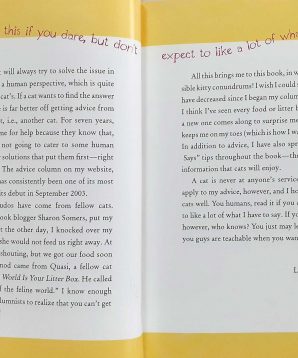 this if you dare, but don't
will always try to solve the issue in
a human perspective, which is quite
cat's. If a cat wants to find the answer
is far better off getting advice from
t, i.e., another cat. For seven years,
me for help because they know that,
not going to cater to some human
solutions that put them first—right
The advice column on my website,
as consistently been one of its most
its debut in September 2003.
udos have come from fellow cats.
ook blogger Sharon Somers, put my
t the other day, I knocked over my
she would not feed us right away. At
shouting, but we got our food soon
nod came from Quasi, a fellow cat
World Is Your Litter Box. He called
f the feline world." I know enough
lumnists to realize that you can't get
expect to like a lot of wha
All this brings me to this book, in w
sible kitty conundrums! I wish I could s
have decreased since I began my colum
I think I've seen every food or litter b
a new one comes along to surprise me
keeps me on my toes (which is how I w
In addition to advice, I have also spe
Says" tips throughout the book—th
information that cats will enjoy.
A cat is never at anyone's servic
apply to my advice, however, and I h
cats well. You humans, read it if you
to like a lot of what I have to say. If y
however, who knows? You just may l
you guys are teachable when you wan
L